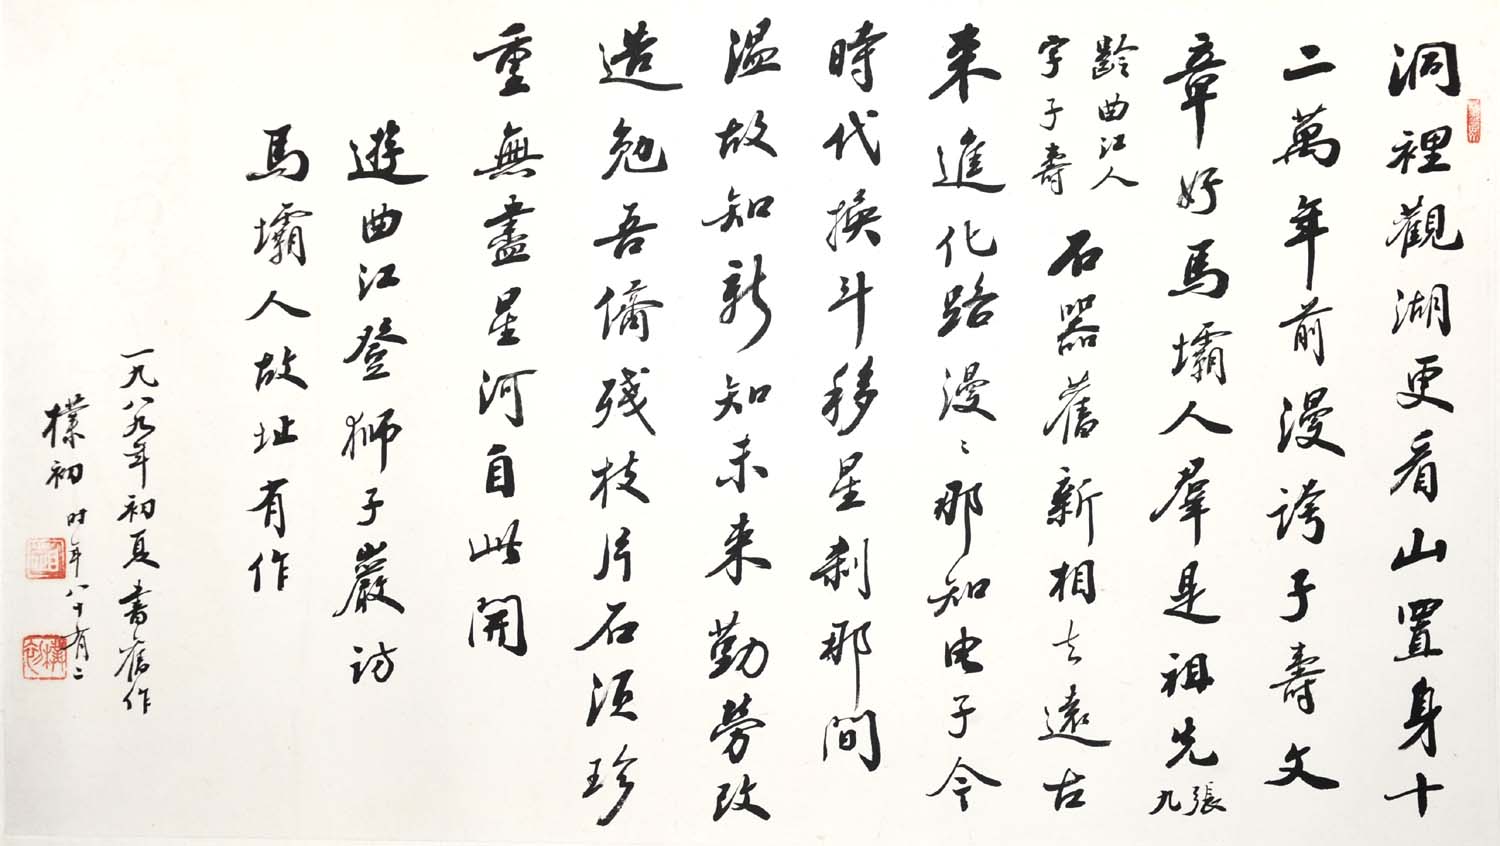 洞裡觀湖更看山置身十
二萬年前漫誇子壽文
章好馬壩人羣是祖先張九
齡曲江人字子壽石器舊新相去遠古
来進化路漫〻那知电子今
時代換斗移星刹那間
温故知新知未来勤勞改
造勉吾儕殘枝片石須珍
重無盡星河自此開
遊曲江登獅子巖訪
馬壩人故址有作
一九八九年初夏書舊作
樸初时年八十有二